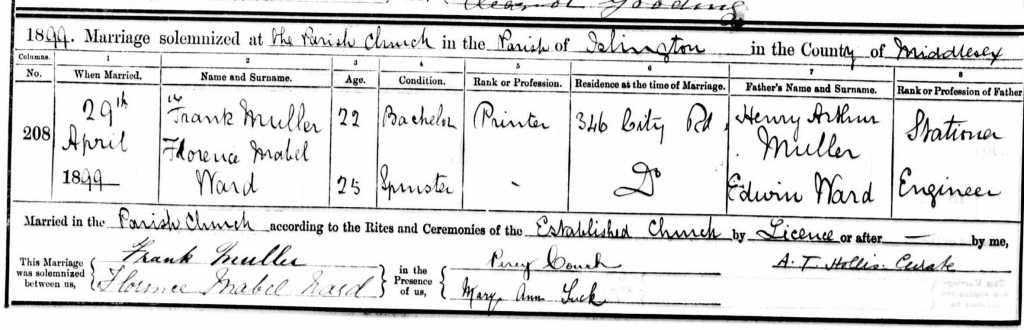 Gooding
1899. Marriage solemnized at the Parish Church in the Parish of Islington in the County of Middlesex
Columns. 1 2 3 4 5 6 7 8
No. When Married. Name and Surname. Age. Condition. Rank or Profession. Residence at the time of Marriage. Father's Name and Surname. Rank or Profession of Father
208 29th April 1899
Frank Muller 22 Bachelor Printer 346 City Rd, Henry Arthur Muller Stationer
Florence Mabel Ward 25 Spinster - Do Edwin Ward Engineer
Married in the Parish Church according to the Rites and Ceremonies of the Established Church by Licence or after — by me,
This Marriage was solemnized between us, { Frank Muller Florence Mabel Ward } in the Presence of us, { Percy Couch Mary Ann Tuck A. T. Hollis. Curate